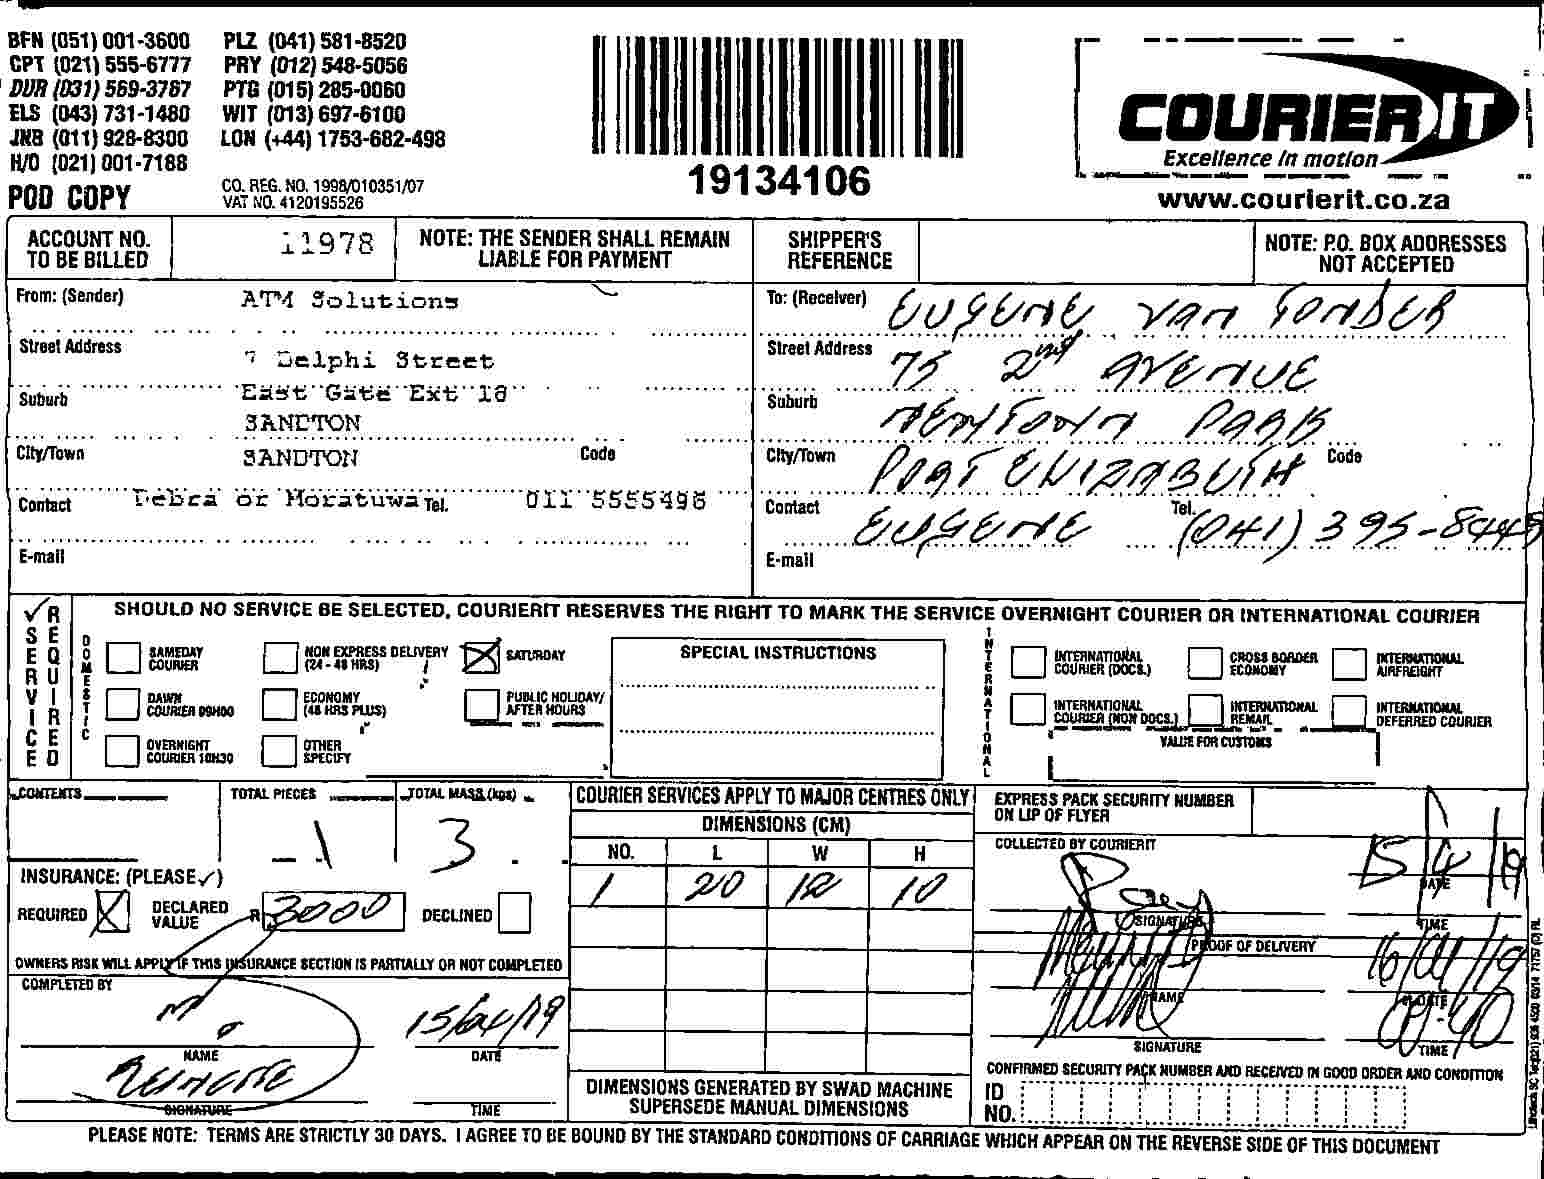 BFN (051) 001-3600 PLZ (041) 581-8520
CPT (021) 555-6777 PRY (012) 548-5056
DUR (031) 569-3767 PTG (015) 285-0060
ELS (043) 731-1480 WIT (013) 697-6100
JNB (011) 928-8300 LON (+44) 1753-682-498
H/O (021) 001-7188
POD COPY
CO. REG. NO. 1998/010351/07
VAT NO. 4120195526
19134106
COURIER IT
Excellence in motion
www.courierit.co.za
ACCOUNT NO. TO BE BILLED
11978
NOTE: THE SENDER SHALL REMAIN LIABLE FOR PAYMENT
SHIPPER'S REFERENCE
NOTE: P.O. BOX ADDRESSES NOT ACCEPTED
From: (Sender) ATM Solutions
Street Address 7 Delphi Street
Suburb East Gate Ext 18
SANDTON
City/Town SANDTON Code
Contact Debra or Moratuwa Tel. 011 5555498
E-mail
To: (Receiver) EUGENE VAN TONDER
Street Address 75 2nd AVENUE
Suburb NEWTOWN PARK
City/Town PORT ELIZABETH Code
Contact EUGENE Tel. (041) 395-8448
E-mail
SERVICE REQUIRED
SHOULD NO SERVICE BE SELECTED, COURIERIT RESERVES THE RIGHT TO MARK THE SERVICE OVERNIGHT COURIER OR INTERNATIONAL COURIER
DOMESTIC
SAMEDAY COURIER
NON EXPRESS DELIVERY (24 - 48 HRS)
SATURDAY
DAWN COURIER 09H00
ECONOMY (48 HRS PLUS)
PUBLIC HOLIDAY/ AFTER HOURS
OVERNIGHT COURIER 10H30
OTHER SPECIFY
SPECIAL INSTRUCTIONS
INTERNATIONAL
INTERNATIONAL COURIER (DOCS.)
CROSS BORDER ECONOMY
INTERNATIONAL AIRFREIGHT
INTERNATIONAL COURIER (NON DOCS.)
INTERNATIONAL REMAIL
INTERNATIONAL DEFERRED COURIER
VALUE FOR CUSTOMS
CONTENTS
TOTAL PIECES 1
TOTAL MASS (kgs) 3
INSURANCE: (PLEASE ✓)
REQUIRED X DECLARED VALUE R 3000 DECLINED
OWNERS RISK WILL APPLY IF THIS INSURANCE SECTION IS PARTIALLY OR NOT COMPLETED
COMPLETED BY
15/04/19
NAME DATE
SIGNATURE TIME
COURIER SERVICES APPLY TO MAJOR CENTRES ONLY
DIMENSIONS (CM)
NO. L W H
1 20 12 10
DIMENSIONS GENERATED BY SWAD MACHINE
SUPERSEDE MANUAL DIMENSIONS
EXPRESS PACK SECURITY NUMBER ON LIP OF FLYER
COLLECTED BY COURIERIT
15/4/19
DATE
SIGNATURE TIME
PROOF OF DELIVERY
16/04/19
NAME DATE
SIGNATURE TIME
CONFIRMED SECURITY PACK NUMBER AND RECEIVED IN GOOD ORDER AND CONDITION
ID NO.
PLEASE NOTE: TERMS ARE STRICTLY 30 DAYS. I AGREE TO BE BOUND BY THE STANDARD CONDITIONS OF CARRIAGE WHICH APPEAR ON THE REVERSE SIDE OF THIS DOCUMENT